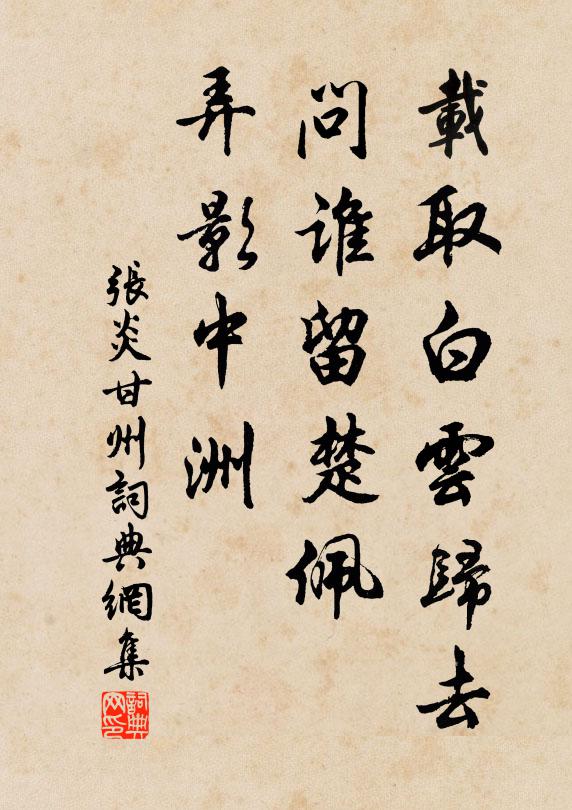 載取白雲歸去
問誰留楚佩
弄影中洲
張炎甘州詞典網集
詞典
网印